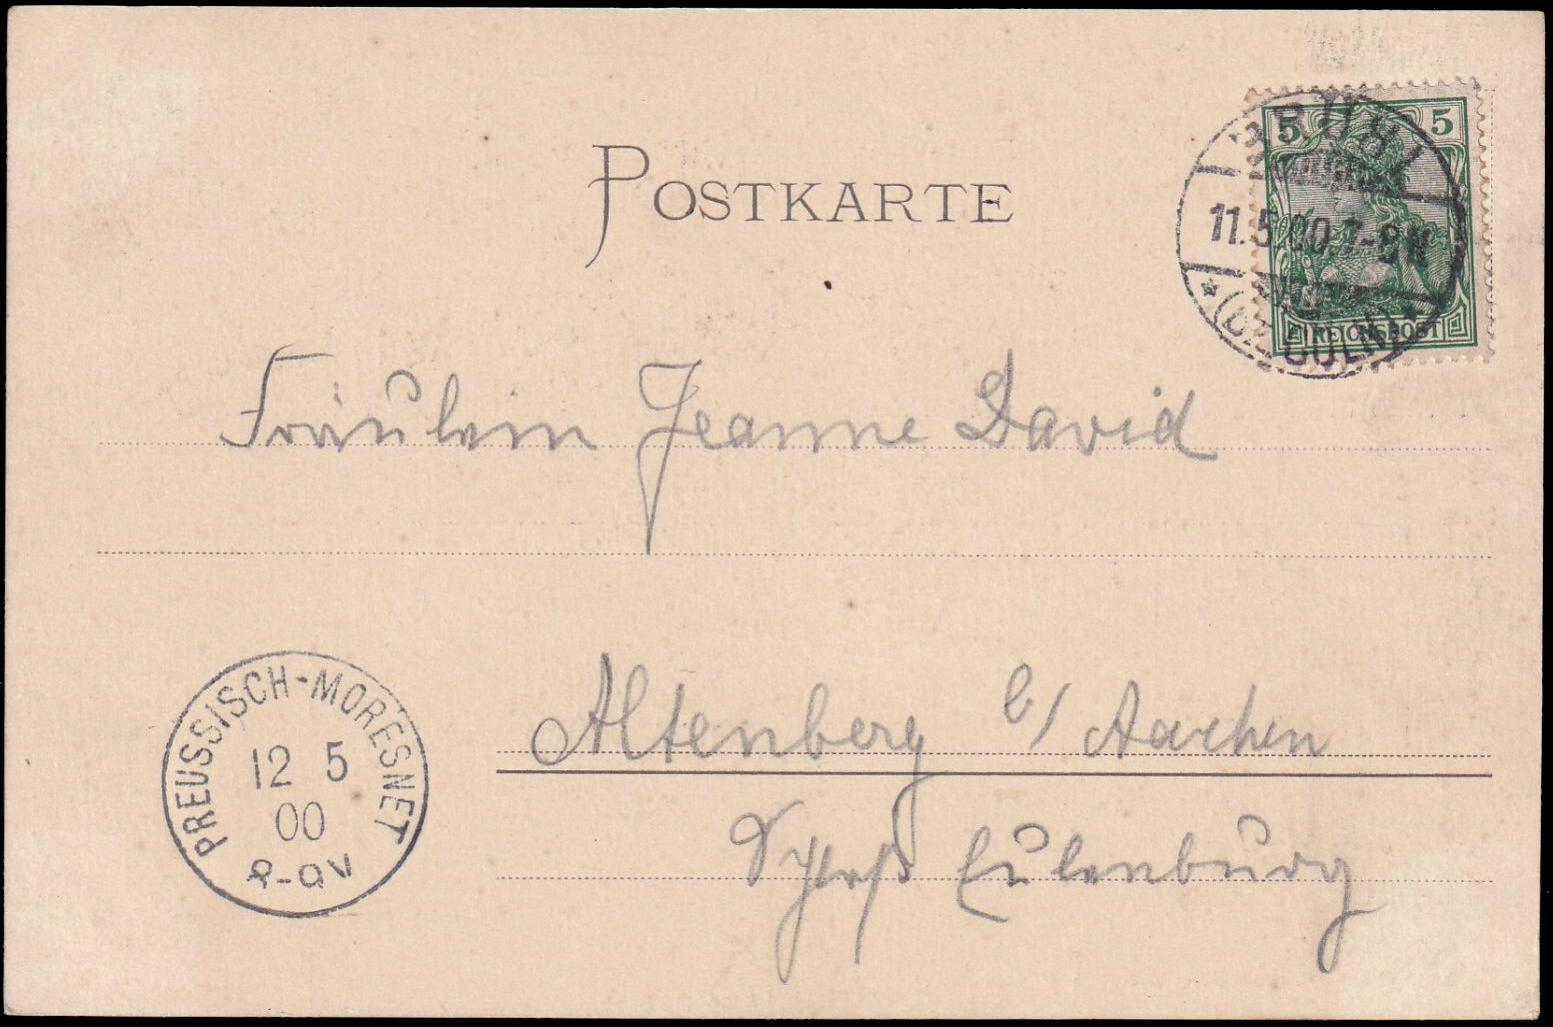 POSTKARTE
5 5
REICHSPOST
BRÜHL
11.5.00.7-8N
* (BZ. CÖLN) *
Fräulein Jeanne David
Altenberg b/ Aachen
Schloß Eulenburg
PREUSSISCH-MORESNET
12 5
00
8-9V